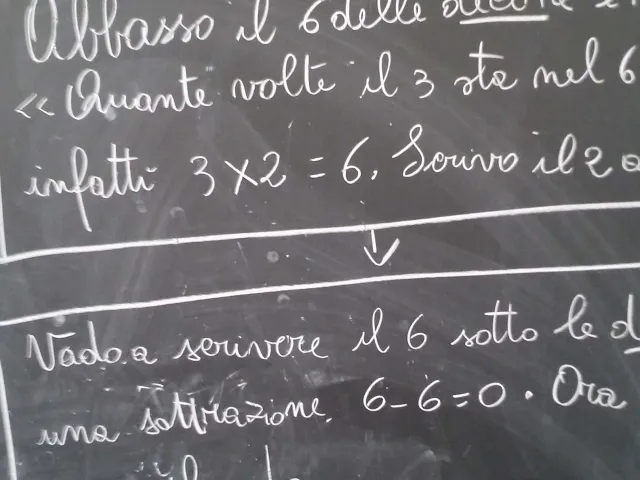 Abbasso il 6 delle decine
<< Quante volte il 3 sta nel 6
infatti 3 X 2 = 6. Scrivo il 2
Vado a scrivere il 6 sotto le d
una sottrazione. 6 - 6 = 0. Ora
il